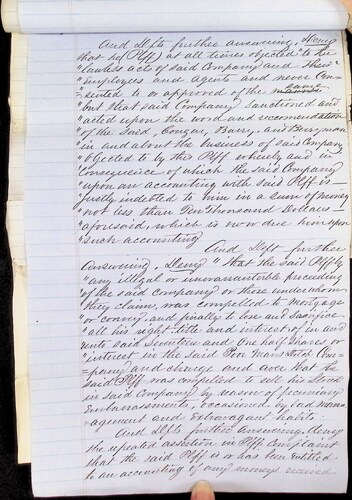 And Defts further answering, Deny
that he (Plff) at all times objected to the
"lawless acts of said Company and their
"employees and agents and never con=
"sented to or approved of the same
"but that said Company sanctioned and
"acted upon the word and recommendation
"of the said, Conzar, Barry, and Berryman
in and about the business of said Company
"objected to by this Plff wholly and in
"consequence of which the said Company
"upon an accounting with said Plff is
"justly indebted to him in a sum of money
"not less than Ten Thousand Dollars
"aforesaid, which is now due him upon
"such accounting
And Deft further
answering, Deny "that the said Plff by
"any illegal or unwarrantable proceeding
"of the said company or those under whom
"they claim, was compelled to mortgage
"or convey and finally to lose and sacrifice
"all his right-title and interest of in and
"unto said Seventeen and one half shares or
"interest in the said Poor Mans Com=
"pany and charge and aver that the
said Plff was compelled to sell his Stock
in said Company by reason of pecuniary
Embarrassments, occasioned by bad man=
agement and extravagant habits.
And Defts further answering, deny
the repeated assertion in Plffs Complaint
that the said Plff is or has been entitled
to an accounting of any moneys received